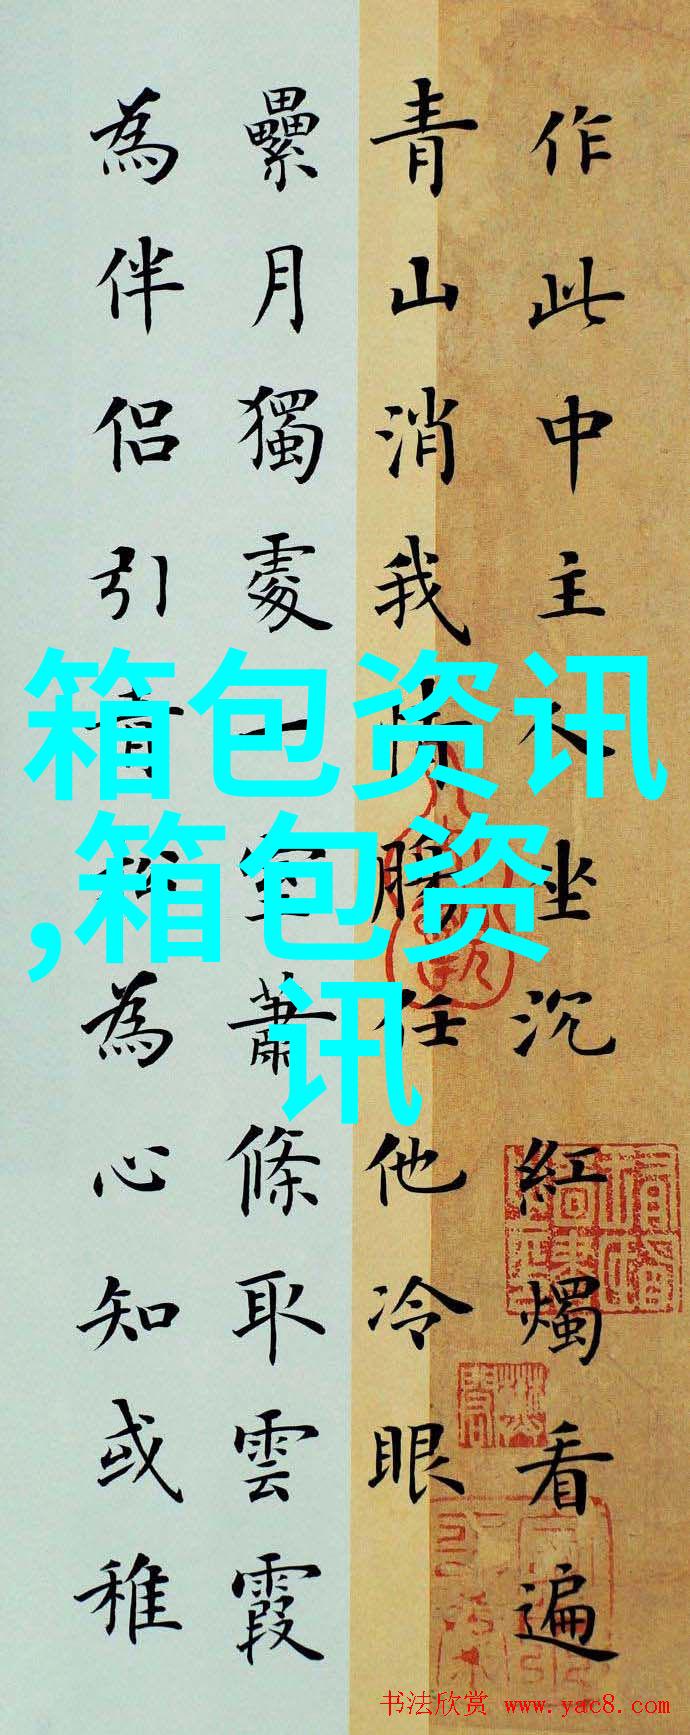 作此中主人坐沉紅燭看遍
青山消我情腸任他冷眼
纍月獨處一室蕭條取雲霞
為伴侶引青松為心知或稚
箱包资讯
,箱包资
讯
书法欣赏 www.yac8.com